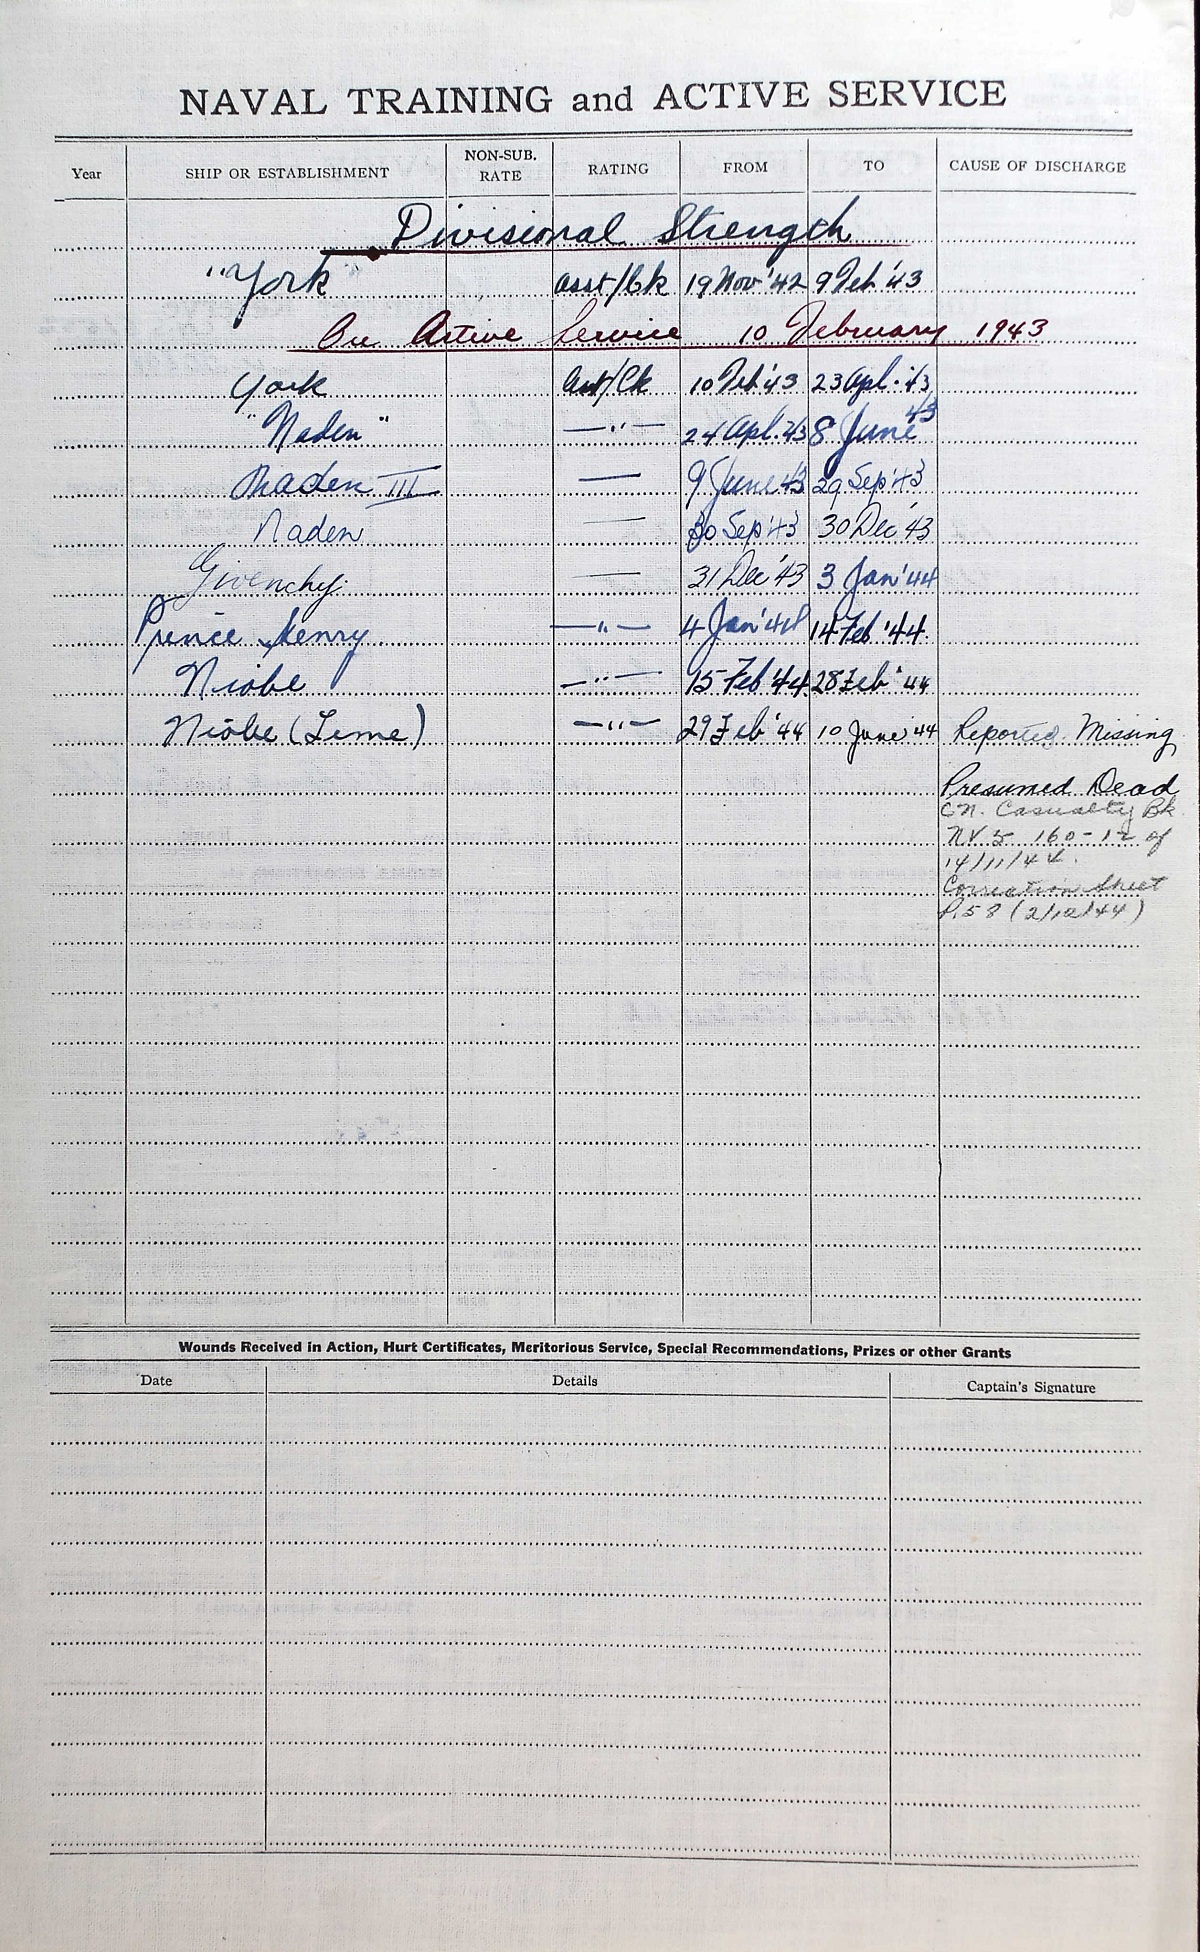 NAVAL TRAINING and ACTIVE SERVICE
Year SHIP OR ESTABLISHMENT NON-SUB. RATE RATING FROM TO CAUSE OF DISCHARGE
Divisional Strength
"York" asst/Ck 19 Nov '42 9 Feb '43
On Active Service 10 February 1943
York Asst/Ck 10 Feb '43 23 Apl. '43
"Naden" —"— 24 Apl. 43 8 June 43
Naden III — 9 June 43 29 Sep '43
Naden — 30 Sep '43 30 Dec '43
Givenchy — 31 Dec '43 3 Jan '44
Prince Henry —"— 4 Jan '44 14 Feb '44.
Niobe —"— 15 Feb '44 28 Feb '44
Niobe (Lime) —"— 29 Feb '44 10 June '44 Reported Missing
Presumed Dead
CN. Casualty Bk
NV 5 160-12 of
14/11/44.
Correction Sheet
P.58 (2/12/44)
Wounds Received in Action, Hurt Certificates, Meritorious Service, Special Recommendations, Prizes or other Grants
Date Details Captain's Signature